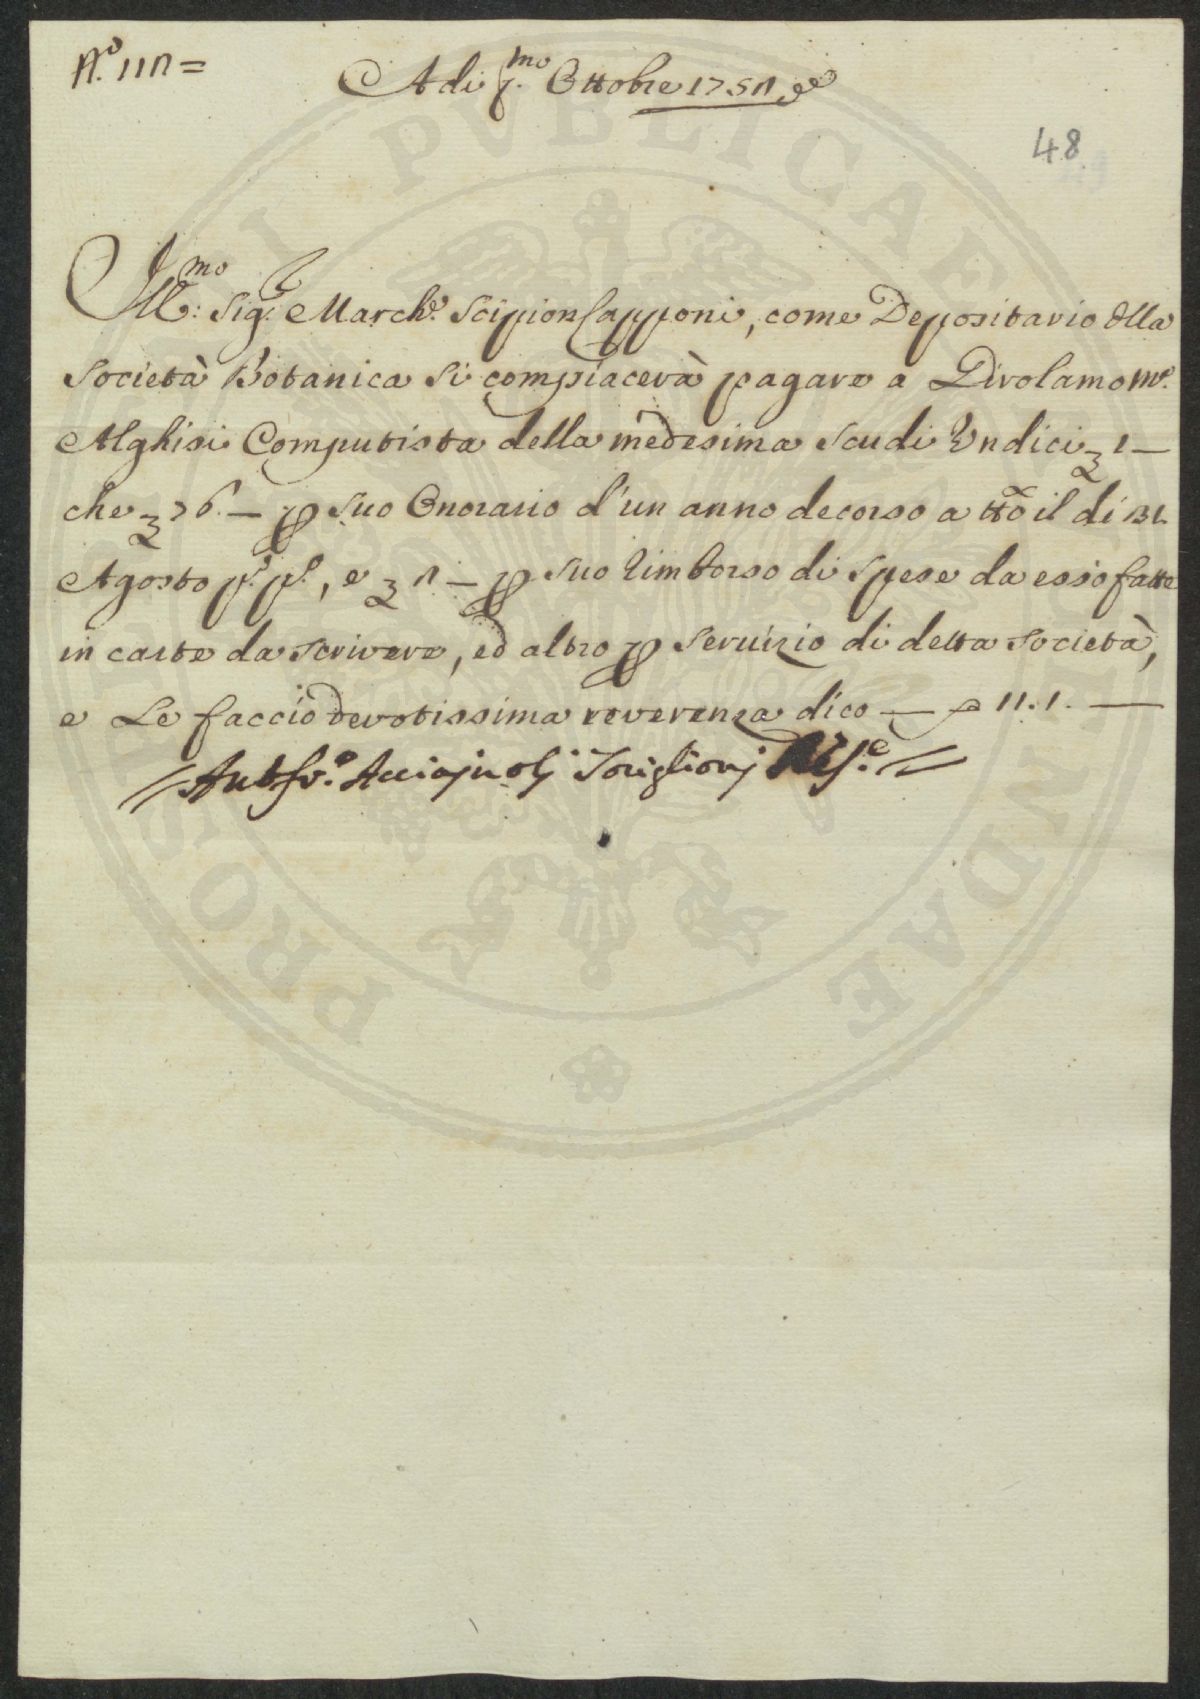 N.º 112=
A di p.mo Ottobre 1752
48
Ill:mo Sig.r March.e Scipion Capponi, come Depositario dlla
Società Botanica si compiacerà pagare a Girolamo M.a
Alghisi Computista della medesima Scudi Undici 1 —
che 76. — p suo Onorario d'un anno decorso a tto il dì 31.
Agosto p.º p.º, e 2 — p suo rimborso di spese da esso fatte
in carte da scrivere, ed altro p servizio di detta Società,
e Le faccio devotissima reverenza dico — 11.1. —
Ant.fr.º Acciajuoli Toriglioni
PROSPERITATI PVBLICAE AVGENDAE